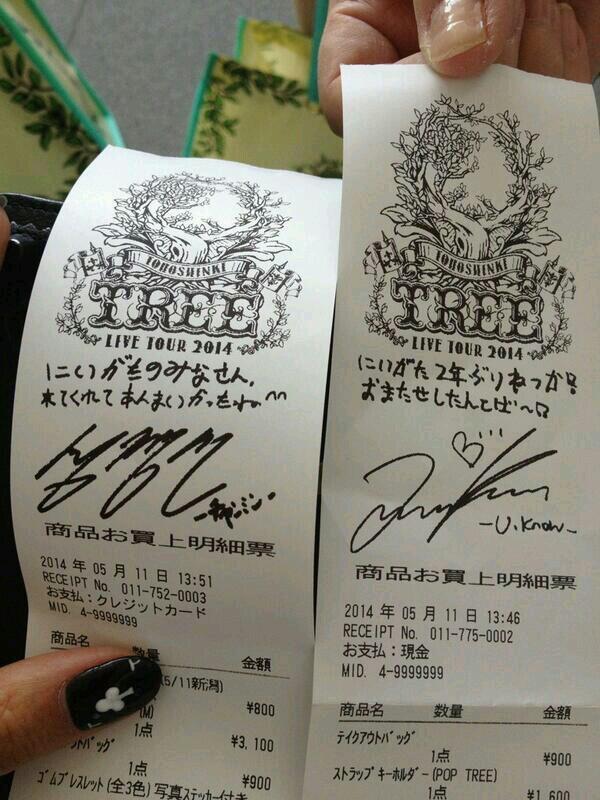 TOHOSHINKI
TREE
LIVE TOUR 2014
にいがたのみなさん、
来てくれて本人まいかっもねー^^
-チャンミン-
商品お買上明細票
2014 年 05 月 11 日 13:51
RECEIPT No. 011-752-0003
お支払:クレジットカード
MID. 4-9999999
商品名 数量 金額
(5/11新潟)
¥800
(M)
1点 ¥3,100
1点 ¥900
ゴムブレスレット(全3色)写真ステッカー付き
TOHOSHINKI
TREE
LIVE TOUR 2014
にいがた2年ぶりねっか!
おまたせしたんてば~!
-U.Know-
商品お買上明細票
2014 年 05 月 11 日 13:46
RECEIPT No. 011-775-0002
お支払:現金
MID. 4-9999999
商品名 数量 金額
テイクアウトバッグ
1点 ¥900
ストラップキーホルダー(POP TREE)
1点 ¥1,600